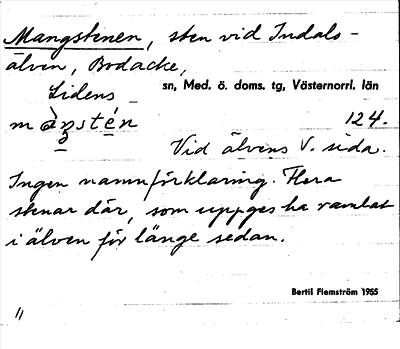 Mangstenen, sten vid Indals-
älven, Bodacke,
Lidens sn, Med. ö. doms. tg, Västernorrl. län
124.
Vid älvens V. sida.
Ingen namnförklaring. Flera
stenar där, som uppges ha ramlat
i älven för länge sedan.
Bertil Flemström 1965